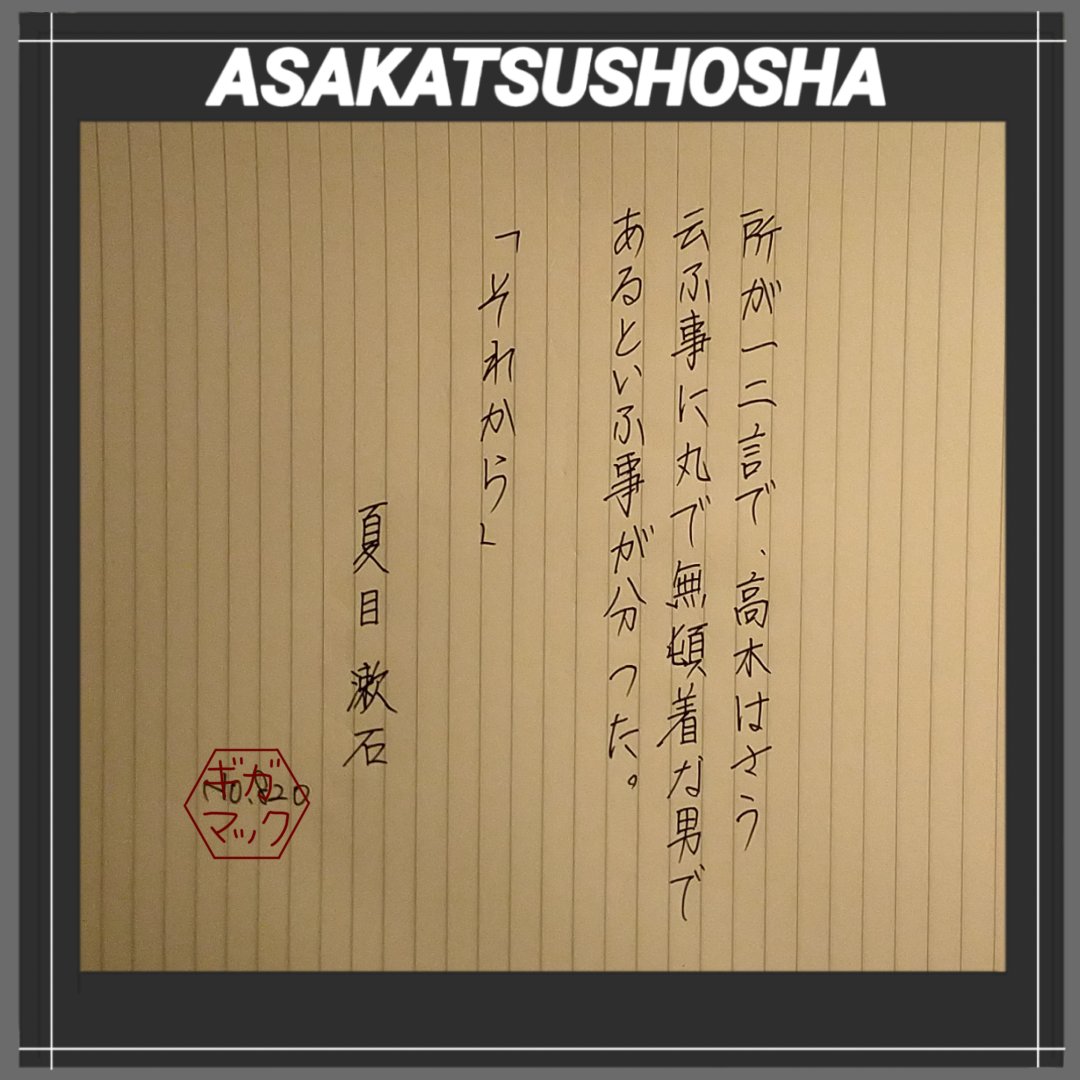 ASAKATSUSHOSHA
所が一二言で、高木はさう
云ふ事に丸で無頓着な男で
あるといふ事が分つた。
「それから」
夏目 漱石
No.820
ボガ
マック